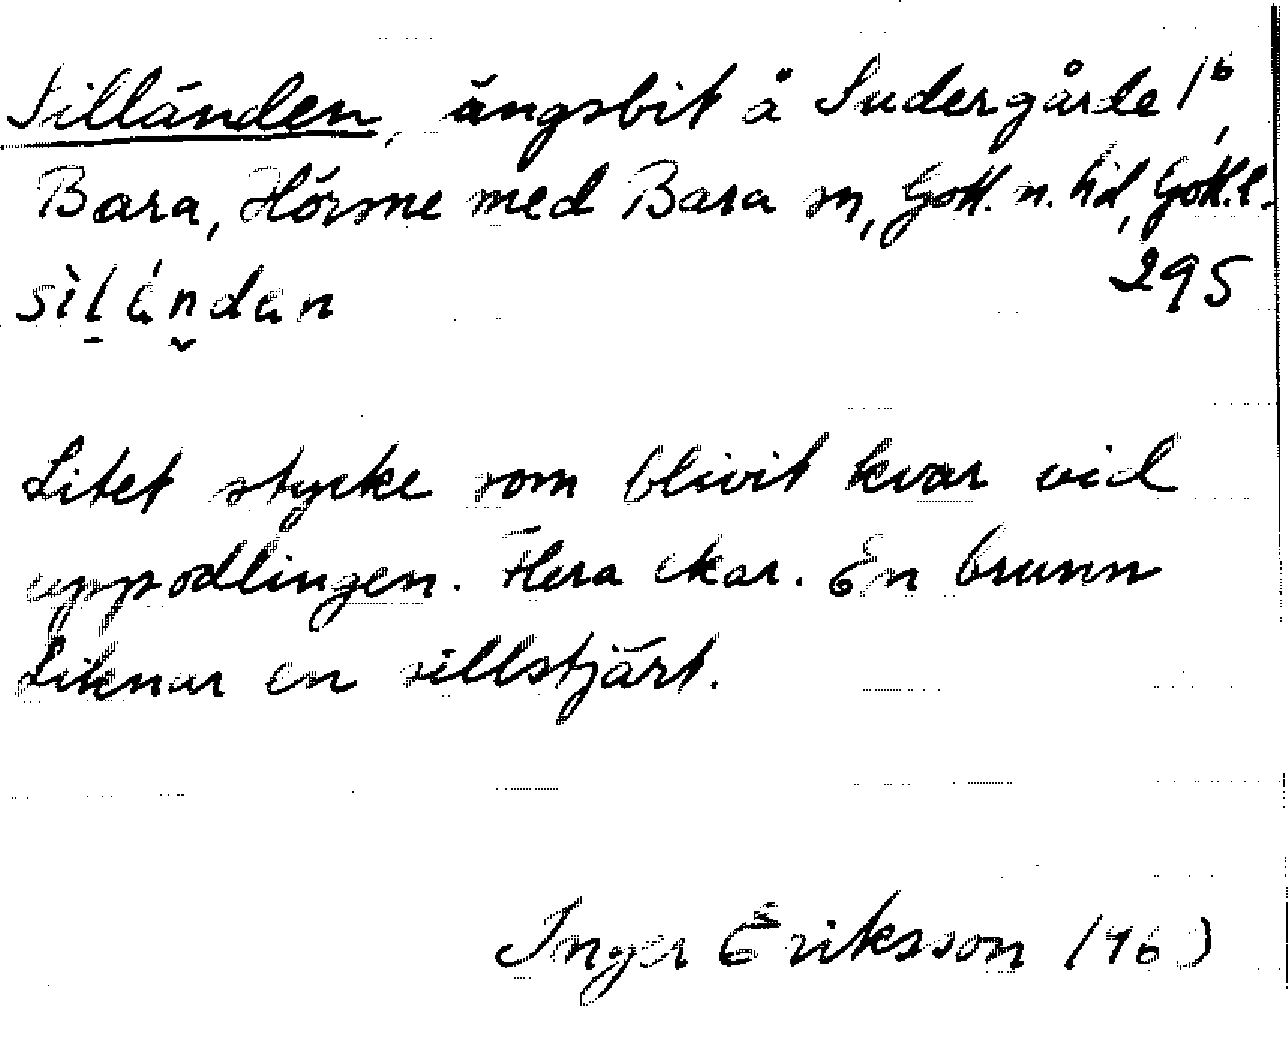 Silländen, ängsbit å Sudergårde 1b,
Bara, Hörsne med Bara sn, Gotl. n. hd, Gotl. l.
295
Litet stycke som blivit kvar vid
uppodlingen. Flera ekar. En brunn
Liknar en sillstjärt.
Inger Eriksson (46)